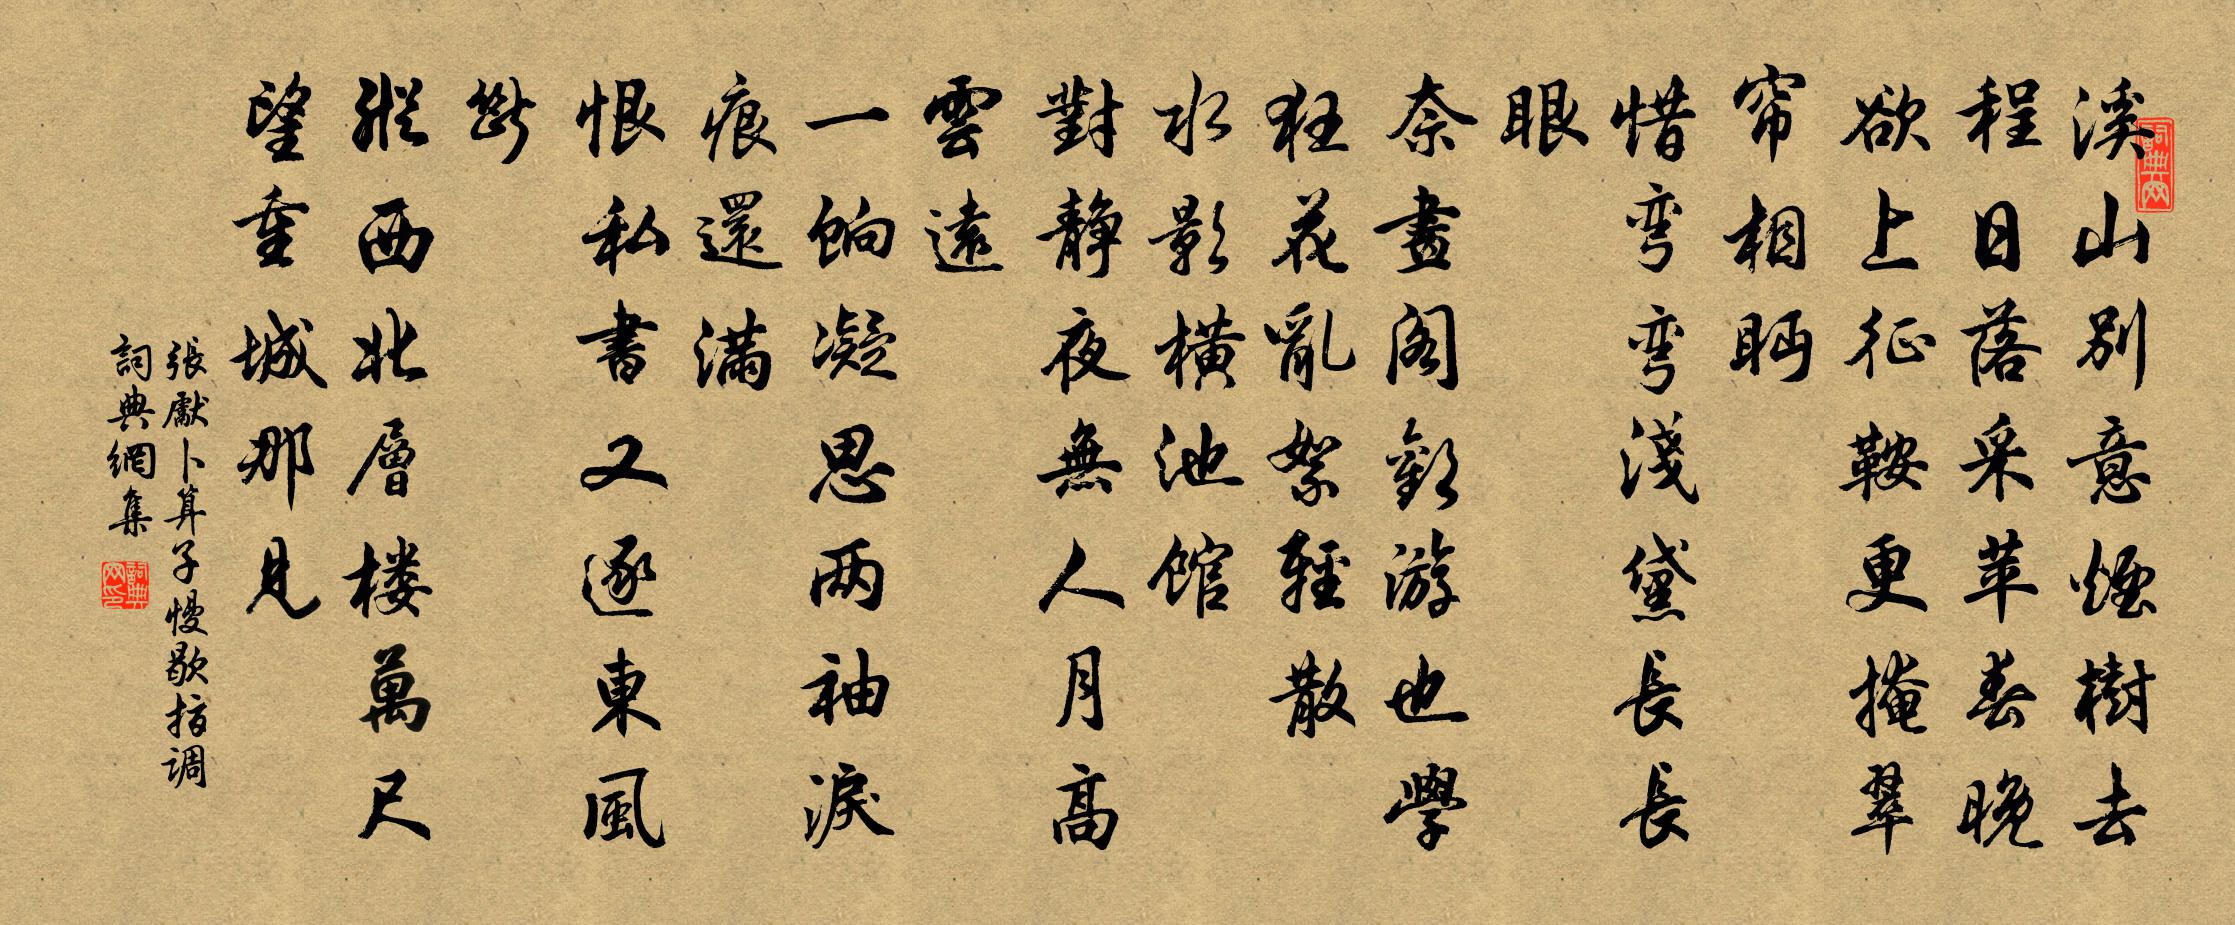 詞典网
溪山別意煙樹去
程日落采苹春晚
欲上征鞍更掩翠
帘相眄
惜弯弯淺黛長長
眼
奈畫閣歡游也學
狂花亂絮輕散
水影橫池館
對靜夜無人月高
雲遠
一餉凝思两袖淚
痕還滿
恨私書又逐東風
斷
縱西北層楼萬尺
望重城那見
張獻卜算子慢歇指调
詞典網集
詞典网印